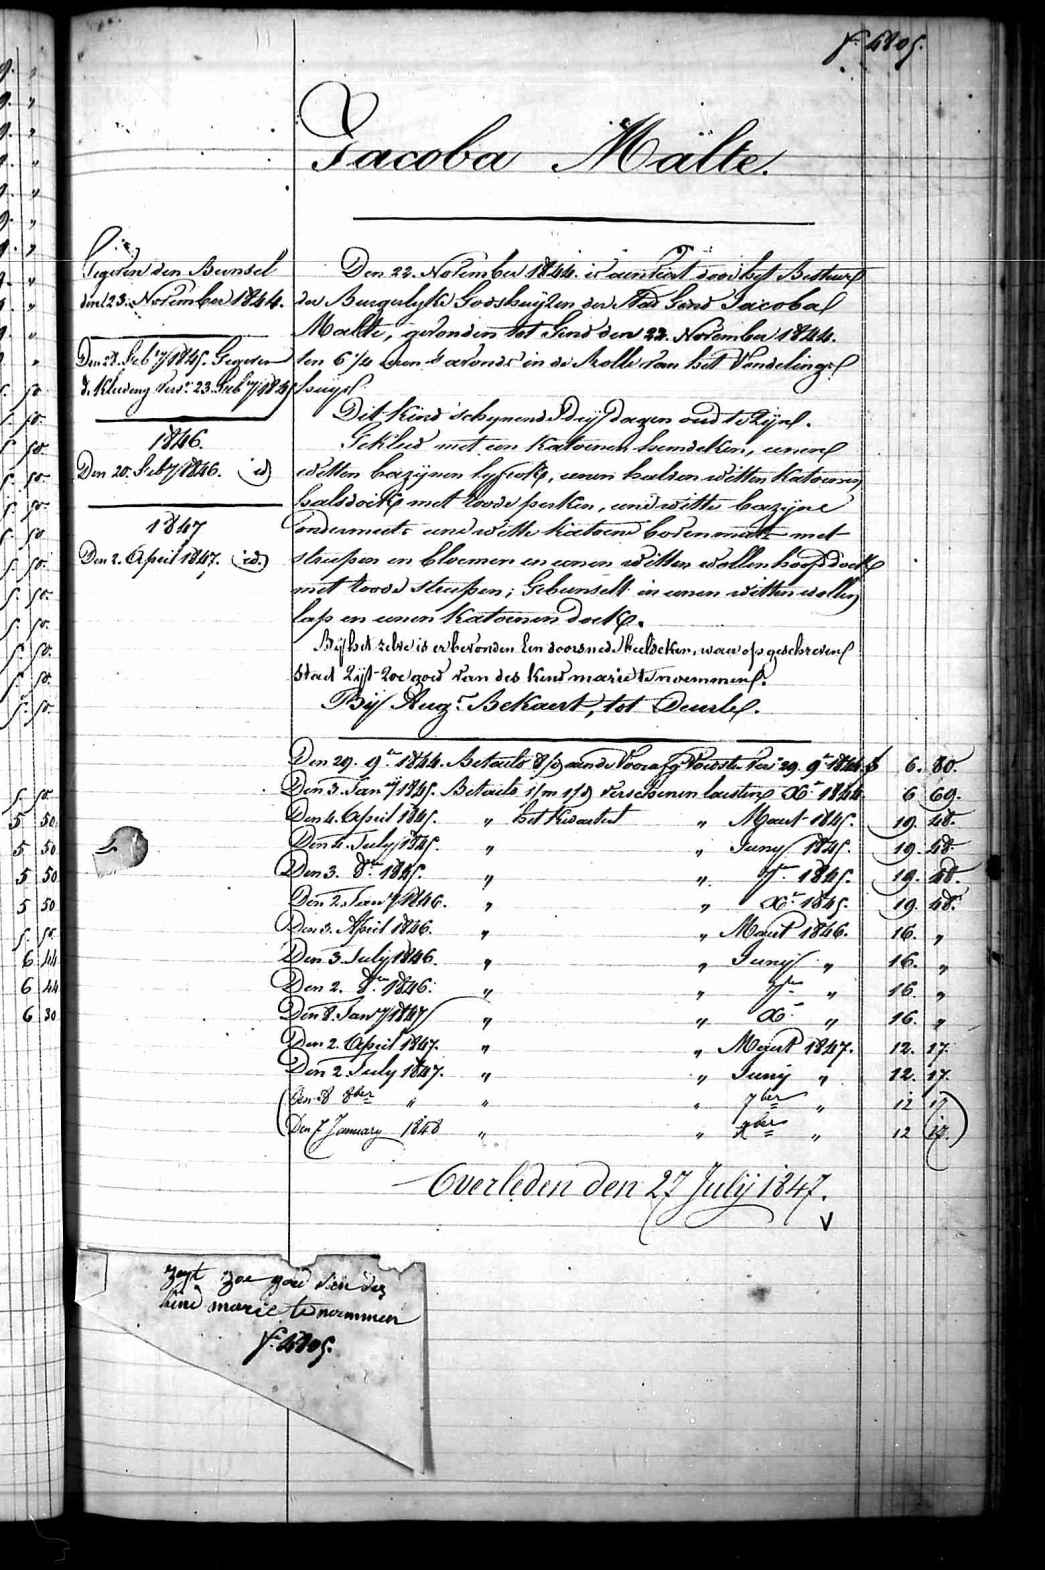 f. 4805.
Jacoba Mälte.
Gegeven den Bunsel
den 23. November 1844.
Den 28. Feby 1845. Gegeven
de Kleeding verv. 23. Feby 1845
1846.
Den 20. Feby 1846. id
1847
Den 2. April 1847. id.
Den 22. November 1844. is aenveird door het Bestuer
der Burgerlyke Godshuyzen der Stad Gend Jacoba
Malte, gevonden tot Gend den 22. November 1844.
ten 6 1/4 uren s'avonds in de Rolle van het Vondelings
huys.
Dit kind schynende dry dagen oud te zyn.
Gekleed met een katoenen hemdeken, eenen
witten bazynen lyfrok, eenen halven witten katoenen
halsdoek met roode perken, eene witte bazyne
ondermuts eene witte katoene bovenmuts met
streepen en bloemen en eenen witten wollen hoofddoek
met roode streepen; Gebunselt in eenen witten wollen
lap en eenen katoenen doek.
By het zelve is er bevonden een doorsnede beeldeken, waer op geschreven
staet Zijt zoo goed van des kind marie te noemmen.
By Aug.n Bekaert, tot Deurle.
Den 29. 9.re 1844. Betaeld aende Voorafg 29. 9.re 1844 f 6. 80.
Den 3. Jany 1845. Betaeld verschenen laesten X.e 1844. 6 69.
Den 4. April 1845. " het Kwartael " Maert 1845. 19. 48.
Den 4. July 1845. " " Juny 1845. 19. 48.
Den 3. 8.re 1845. " " 7.re 1845. 19. 48.
Den 2. Jany 1846. " " X.e 1845. 19. 48.
Den 3. April 1846. " " Maert 1846. 16. "
Den 3. July 1846. " " Juny " 16. "
Den 2. 8.re 1846. " " 7.re " 16. "
Den 8. Jany 1847 " " X.e " 16. "
Den 2. April 1847. " " Maert 1847. 12. 17.
Den 2. July 1847. " " Juny " 12. 17.
(Den 8 8ber " " " 7ber " 12 17
(Den 7 January 1848 " " Xber " 12 17.)
Overleden den 27 July 1847.
V
zeyt zoe goed van des
kind marie te noemmen
f. 4805.